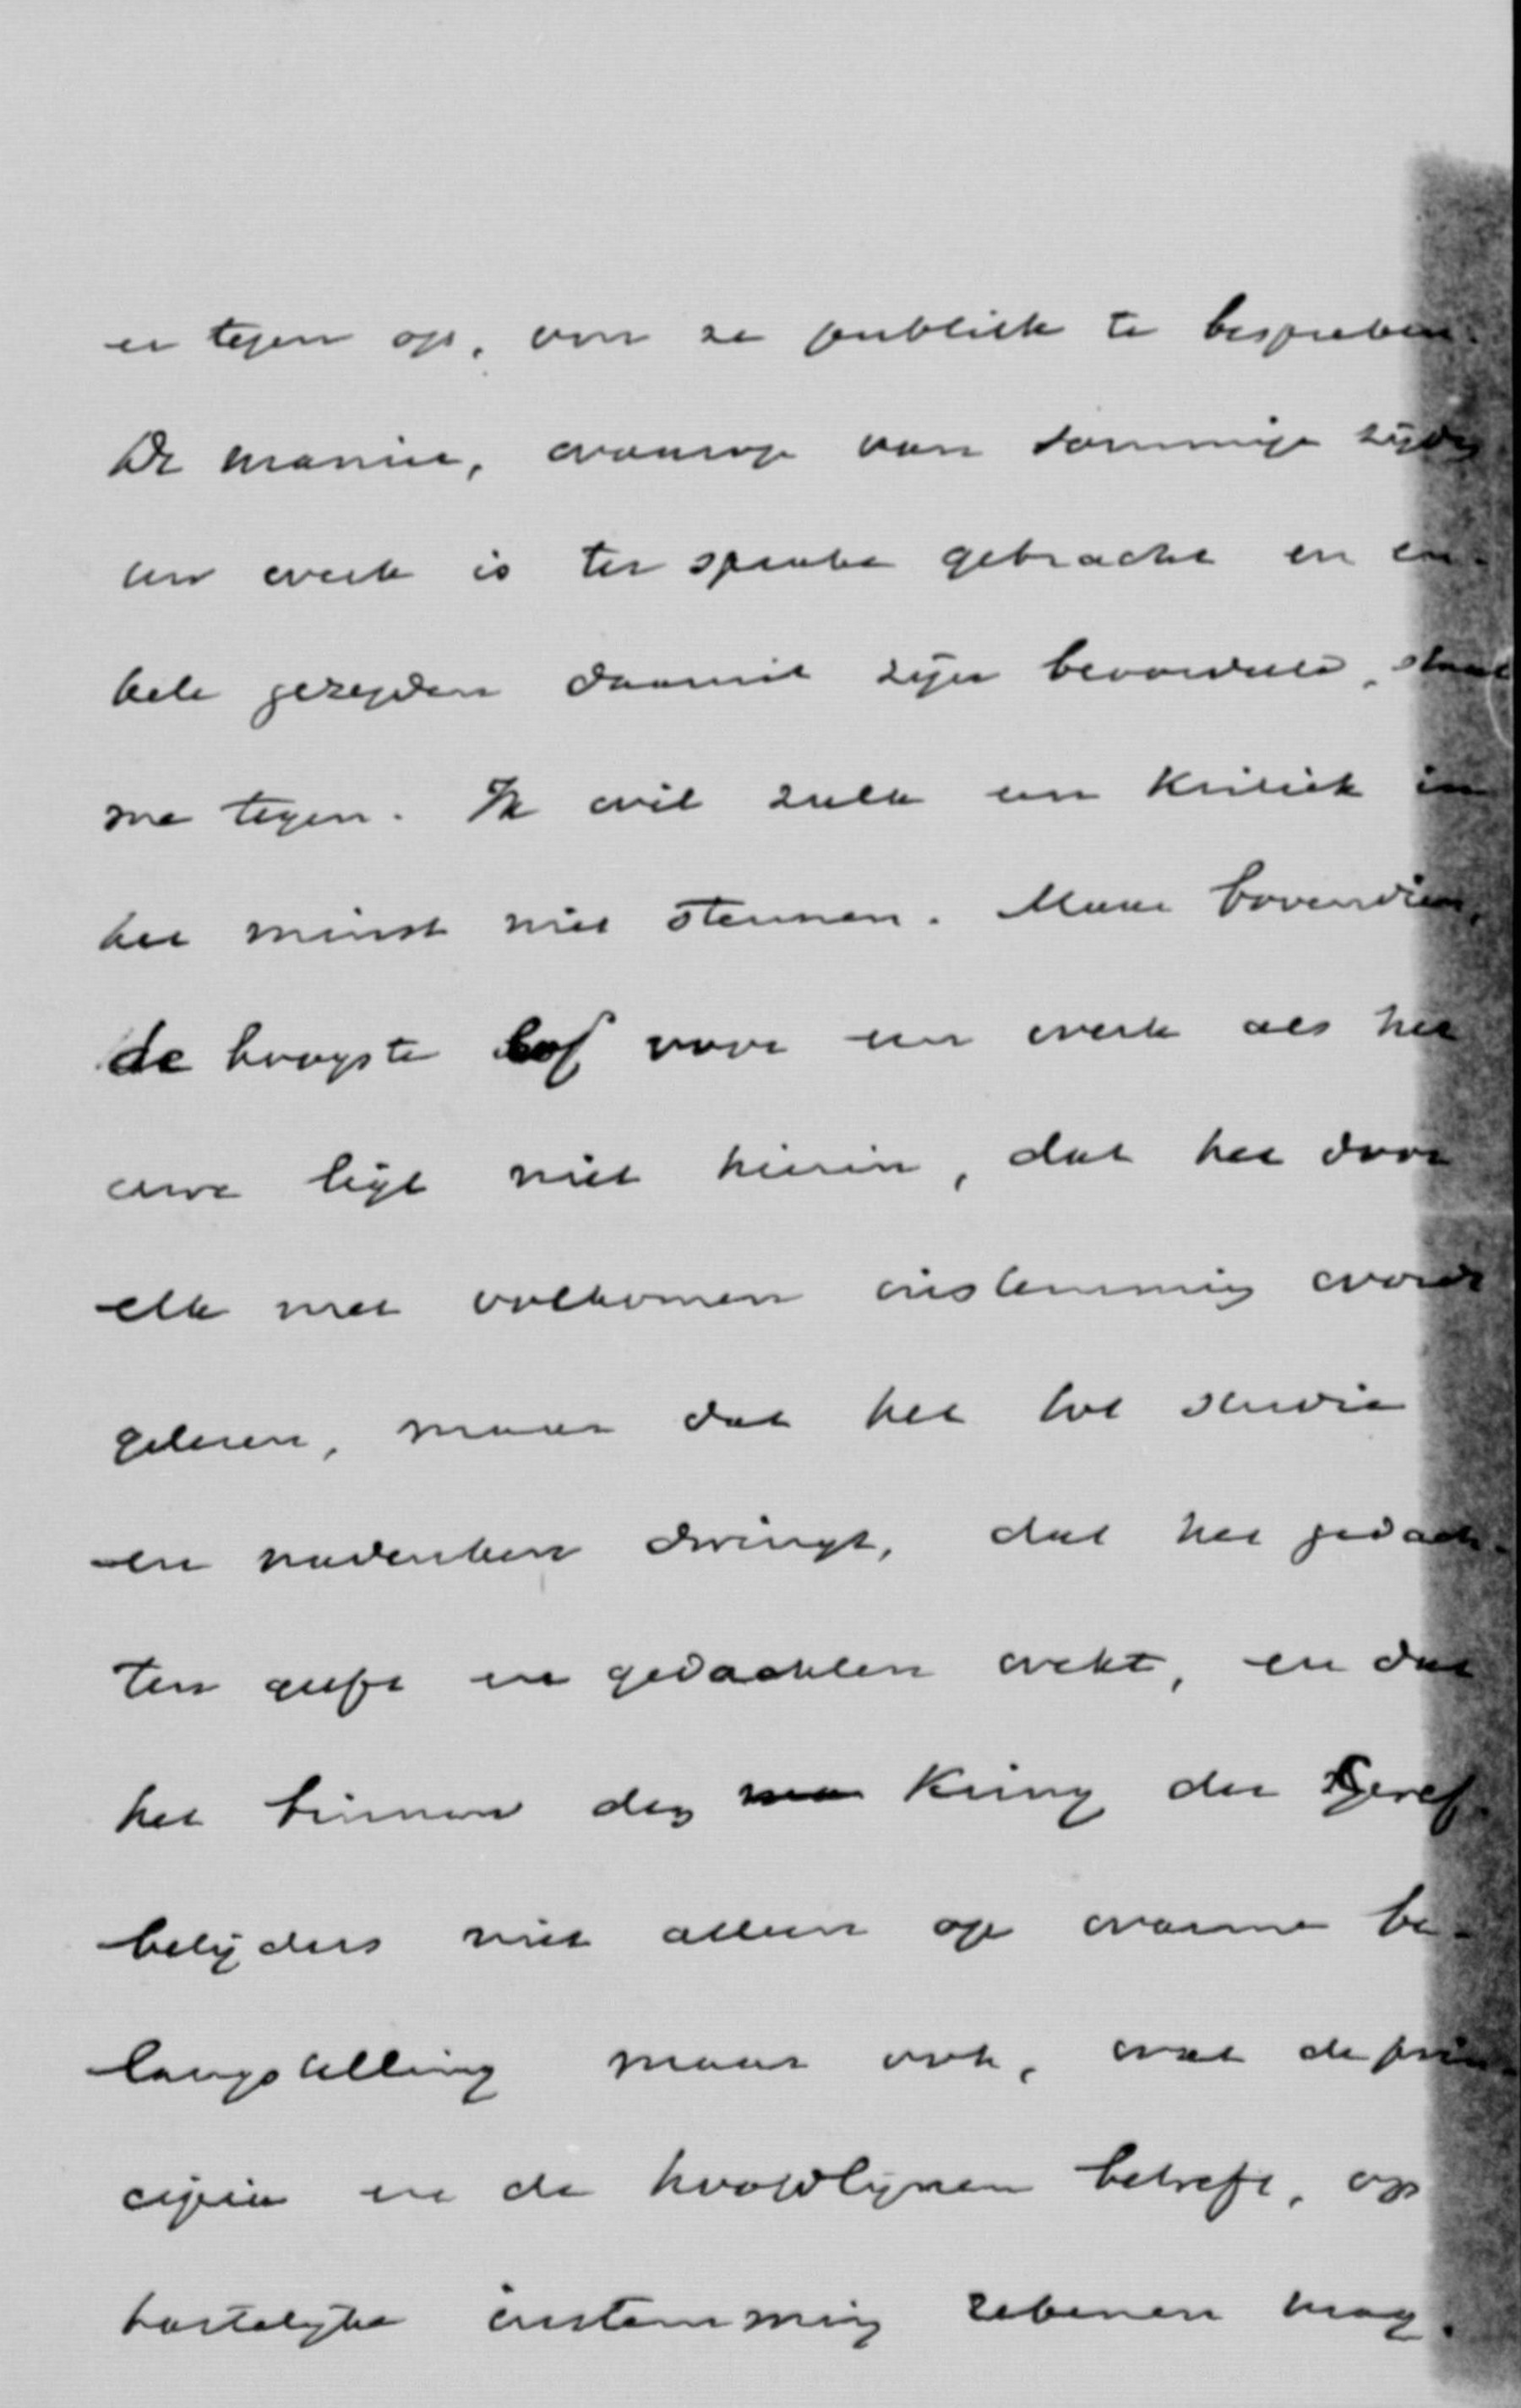 er tegen op, om ze publiek te bespreken.
De manier, waarop van sommige zijde
uw werk is ter sprake gebracht en en-
kele gezegden daaruit zijn beoordeeld, staat
me tegen. Ik wil zulk een kritiek in
het minst niet steunen. Maar bovendien,
de hoogste lof voor een werk als het
uwe ligt niet hierin, dat het door
elk met volkomen instemming wordt
gelezen, maar dat het tot studie
en nadenken dwingt, dat het gedach-
ten geeft en gedachten wekt, en dat
het binnen den kring der Geref.
belijders niet alleen op warme be-
langstelling maar ook, wat de prin-
cipien en de hoofdlijnen betreft, op
hartelijke instemming rekenen mag.